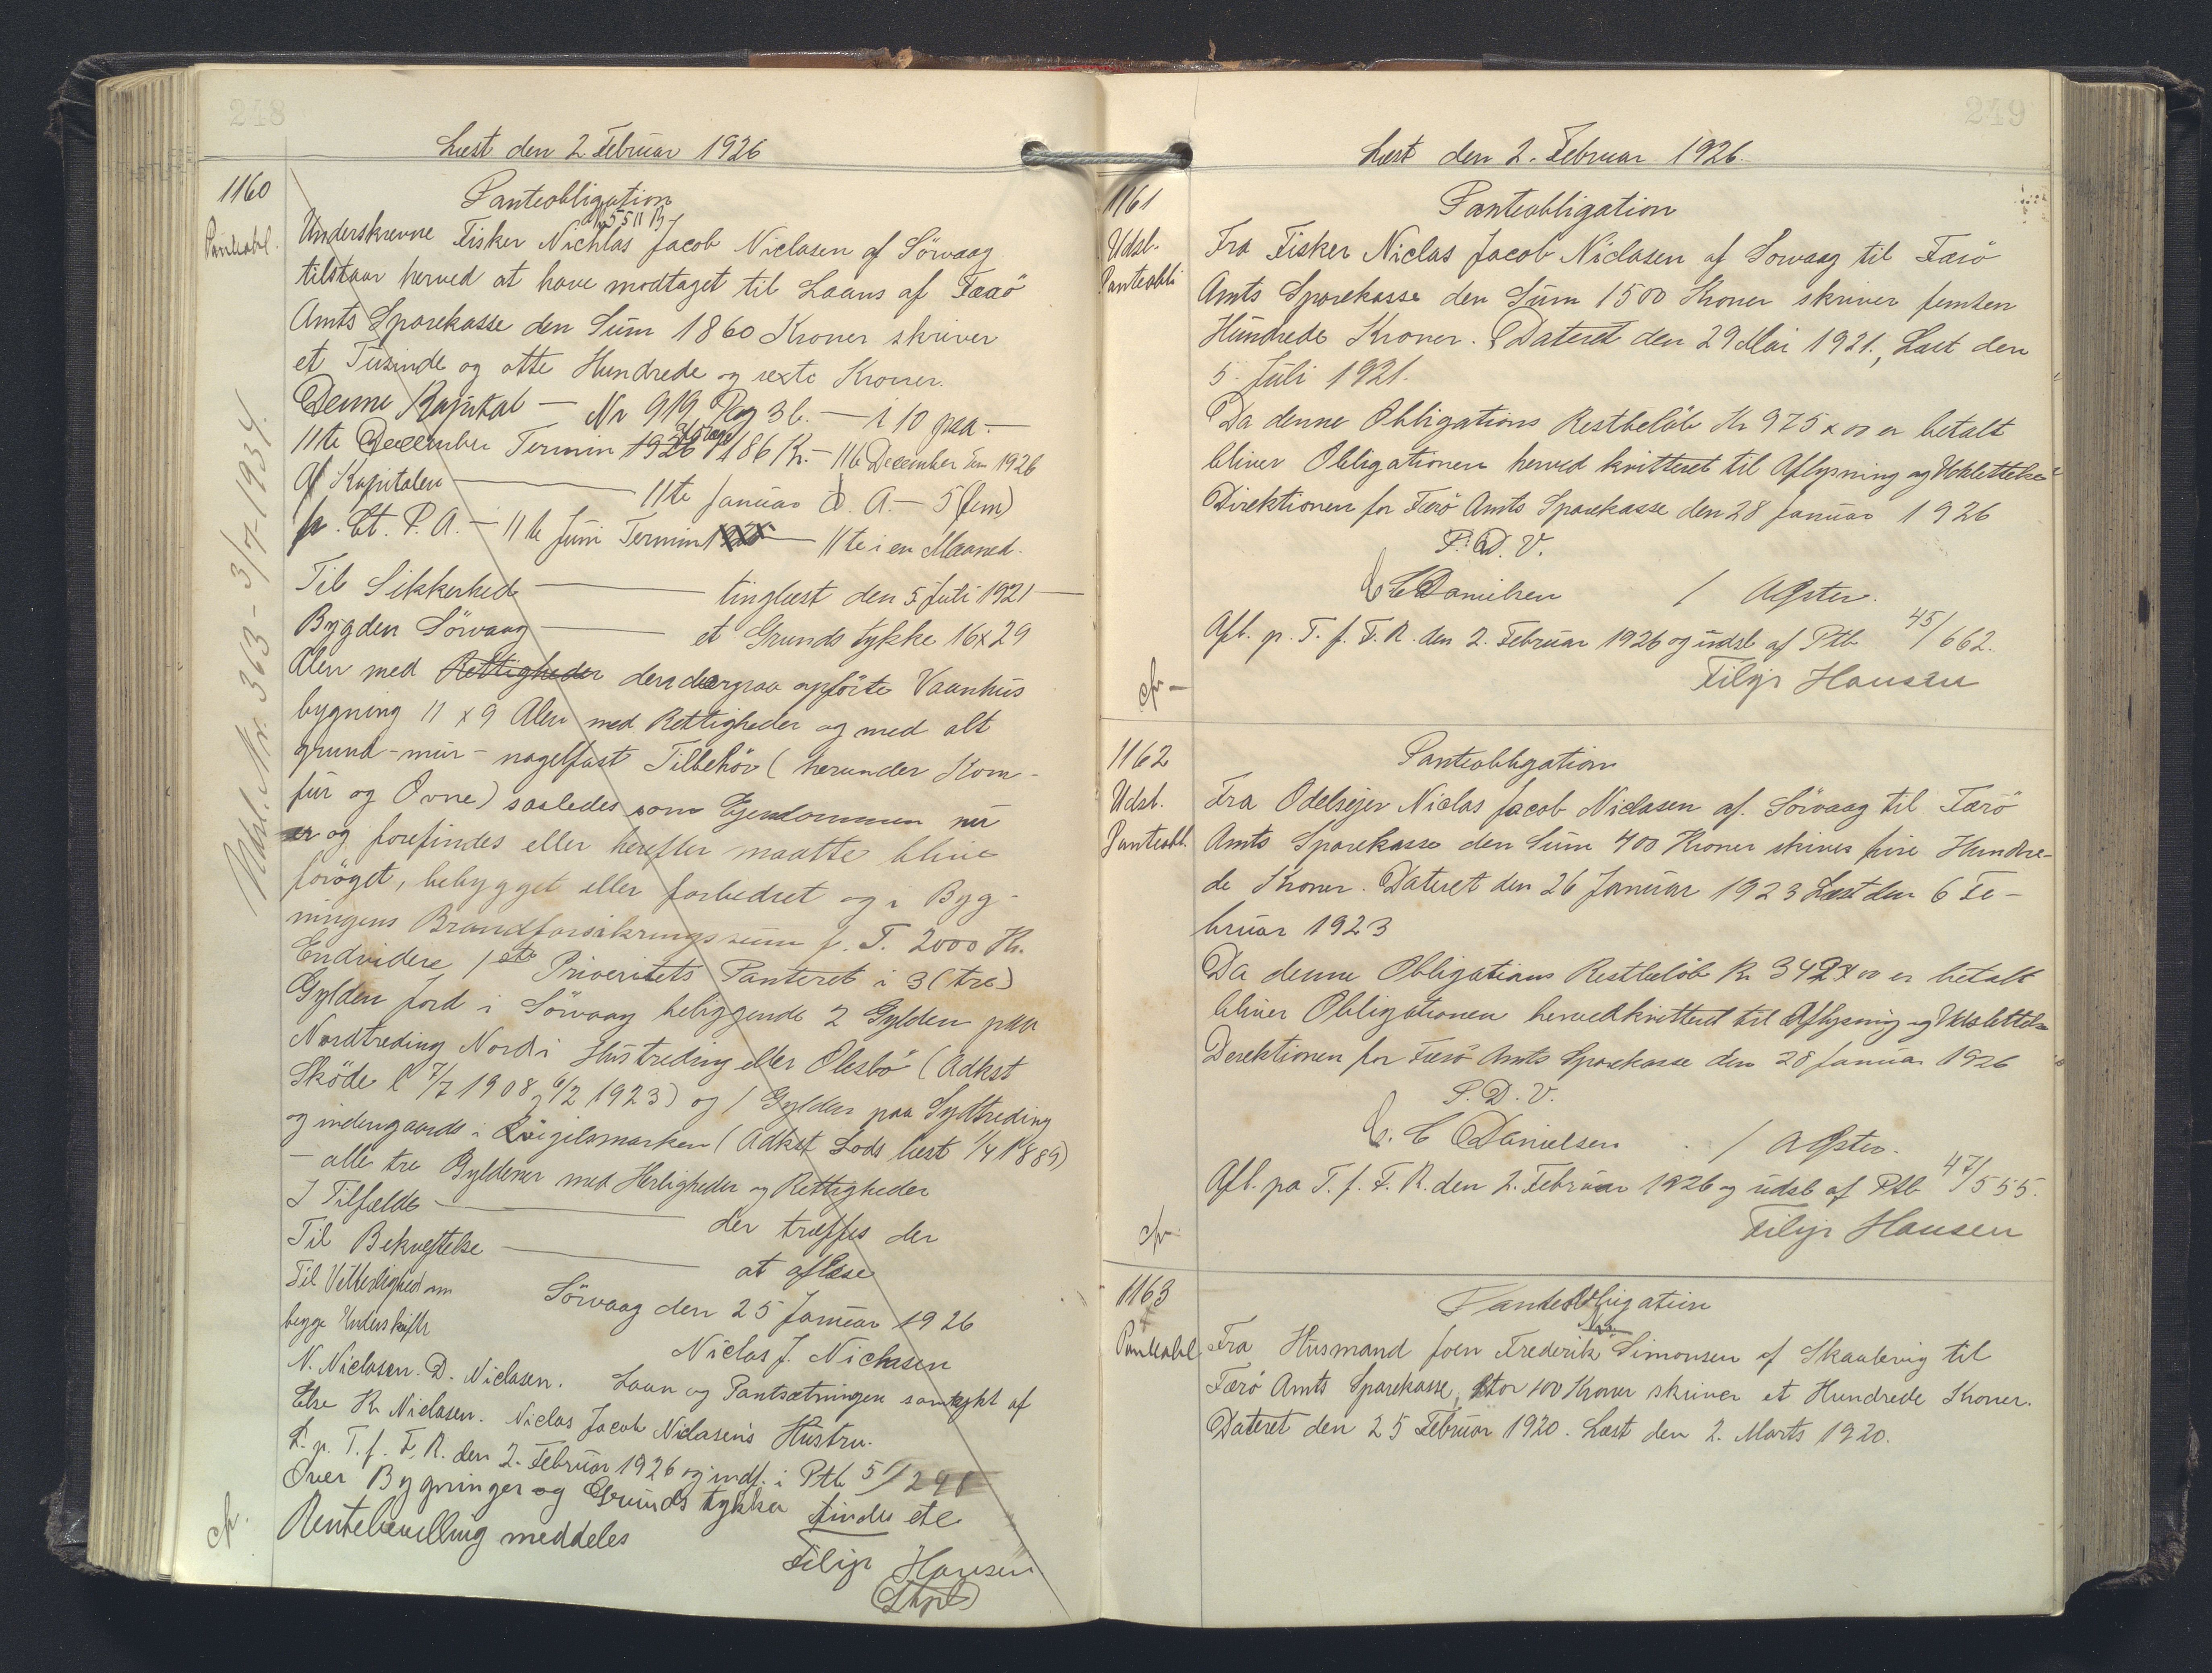 248
Læst den 2 Februar 1926
1160
Panteobl.
Panteobligation
Underskrevne Fisker Nichlas Jacob Niclasen af Sörvaag
tilstaar herved at have modtaget til Laans af Færö
Amts Sparekasse den Sum 1860 Kroner skriver
et Tusinde og otte Hundrede og sexti Kroner.
Denne Kapital — Nr 919 Pag 36. — i 10 paa —
11te December Termin 1926 186 Kr. — 11te December Term 1926
Af Kapitalen — 11te Januar d. A. — 5 (fem)
p. Ct. P. A. — 11te Juni Termin — 11te i en Maaned.
Til Sikkerhed — tinglæst den 5 Juli 1921 —
Bygden Sörvaag — et Grundstykke 16x29
Alen med Rettigheder den derpaa opførte Vaanhus
bygning 11 x 9 Alen med Rettigheder og med alt
grund-mur-nagelfast Tilbehör (herunder Kom-
fur og Ovne) saaledes som Ejendommen nu
er og forefindes eller herefter maatte blive
foröget, bebygget eller forbedret og i Byg-
ningens Brandforsikringssum p. T. 2000 Kr.
Endvidere 1ste Prioritets Panteret i 3 (tre)
Gylden Jord i Sörvaag beliggende 2 Gylden paa
Nordtreding Nord i Hustreding eller Olesbö (Adkst
Sköde l 7/7 1908, 6/2 1923) og 1 Gylden paa Sydtreding
og indengaards i Quigilsmarken (Adkst Lods læst 1/4 1889)
— alle tre Gyldener med Herligheder og Rettigheder
I Tilfælde — der træffes der
Til Bekræftelse — at aflæse
Til Vitterlighed om
Sörvaag den 25 Januar 1926
begge Underskrifter
Niclas J. Niclasen
N. Niclasen. D. Niclasen. Laan og Pantsætningen samtykt af
Else K. Niclasen. Niclas Jacob Niclasens Hustru.
L. p. T. f. F. R. den 2. Februar 1926 og indf. i Ptb 51/291
Over Bygninger og Grundstykke findes etc
Rentebevilling meddeles
Filip Hansen
cfr.
Mtrl. Nr. 363 - 3/7-1934.
249
Læst den 2. Februar 1926.
1161
Udsl.
Panteobli
Panteobligation
Fra Fisker Niclas Jacob Niclasen af Sorvaag til Færö
Amts Sparekasse den Sum 1500 Kroner skriver femten
Hundrede Kroner. Dateret den 29 Mai 1921., Læst den
5. Juli 1921.
Da denne Obligations Restbelöb Kr 975 x 00 er betalt
bliver Obligationen herved kvitteret til Aflysning og Udslettelse
Direktionen for Færö Amts Sparekasse den 28 Januar 1926
P. D. V.
C C Danielsen / A Öster.
Afl. p. T. f. F. R. den 2. Februar 1926 og udsl af Ptb 45/662.
Filip Hansen
cfr —
1162
Udsl.
Panteobl.
Panteobligation
Fra Odelsejer Niclas Jacob Niclasen af. Sörvaag til Færö
Amts Sparekasse den Sum 400 Kroner skrives fire Hundre-
de Kroner. Dateret den 26 Januar 1923 Læst den 6 Fe-
bruar 1923
Da denne Obligations Restbelöb Kr 342 x 00 er betalt
bliver Obligationen herved kvitteret til Aflysning og Udslettelse
Derektionen for Færö Amts Sparekasse den 28 Januar 1926
P. D. V.
C. C Danielsen / A Öster.
Afl. pa T. f. F. R. den 2. Februar 1926 og udsl af Ptb 47/555.
Filip Hansen
cfr.
1163
Panteobl
Panteobligation
Fra Husmand Joen Frederik Simonsen af Skaalevig til
Færö Amts Sparekasse, stor 100 Kroner skriver et Hundrede Kroner.
Dateret den 25 Februar 1920. Læst den 2. Marts 1920.